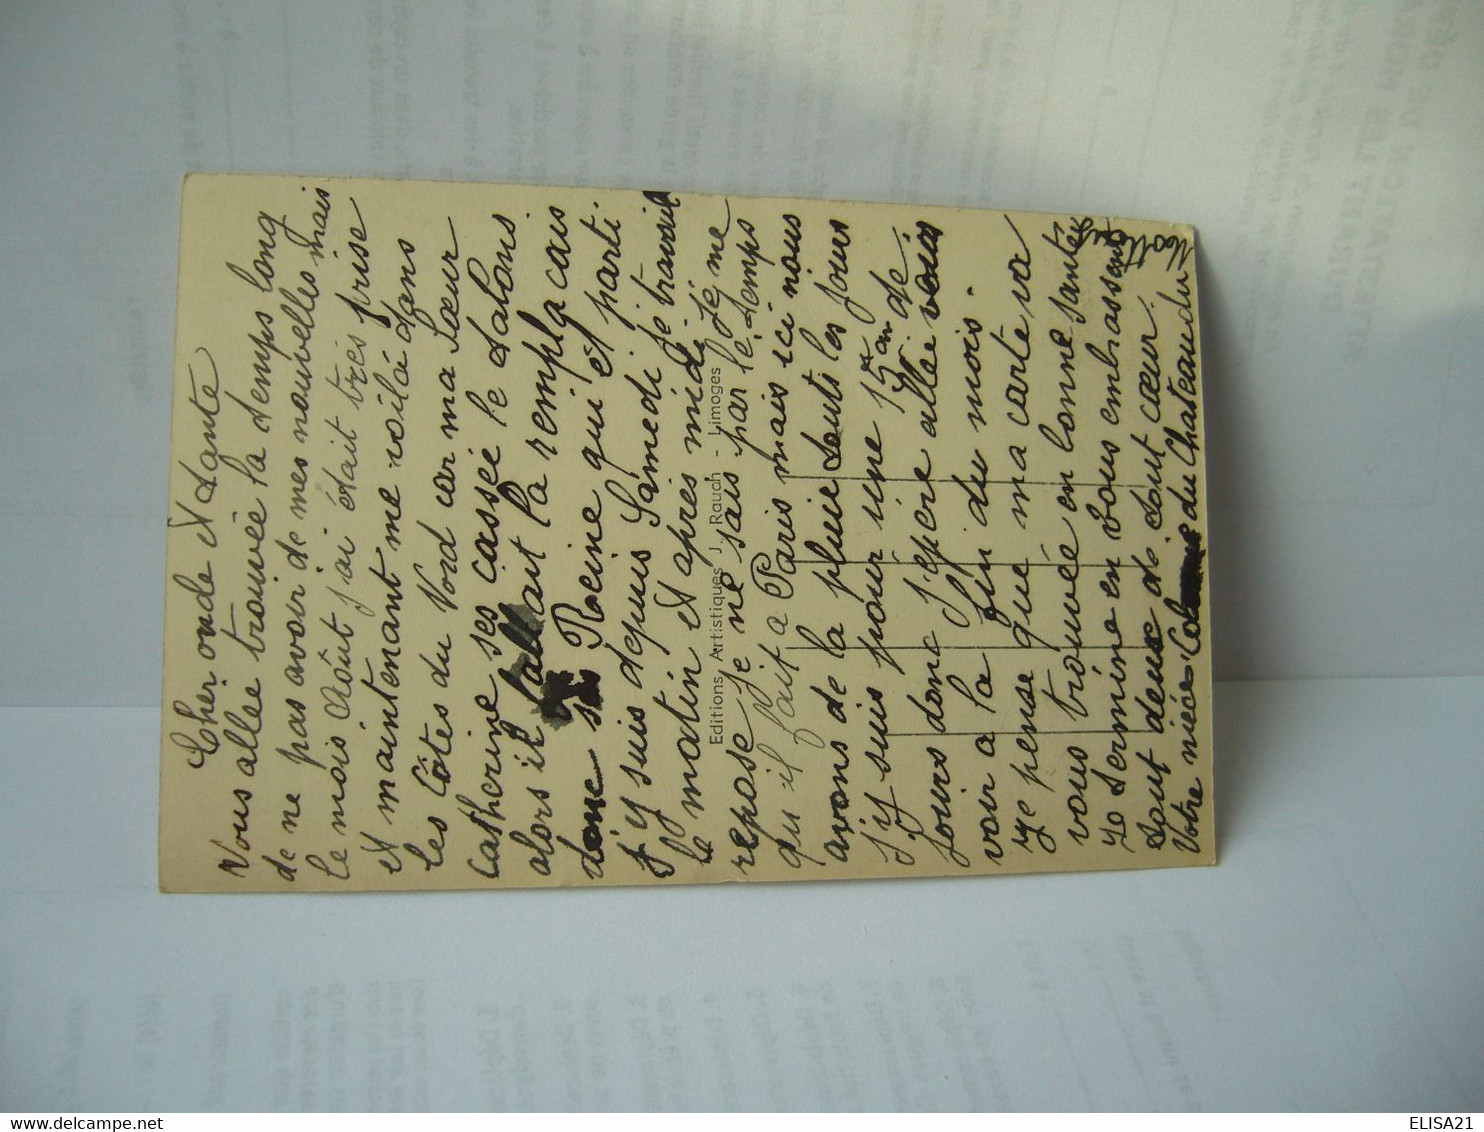 Cher oncle et tante
Vous allée trouvée la temps long
de ne pas avoir de mes nouvelles mais
le mois Août j'ai était très prise
et maintenant me voilà dans
les Côtes du Nord car ma Sœur
Catherine ses cassée le talons
alors il fallait la remplaçais
donc Reine qui et parti
j'y suis depuis Samedi je travail
le matin et après midi je me
Editions Artistiques J. Rauch - Limoges
repose je ne sais par le temps
qu'il fait a Paris mais ici nous
avons de la pluie touts les jours
j'y suis pour une 15ne de
jours donc j'épère allée vous
voir a la fin du mois.
Je pense que ma carte va
vous trouvée en bonne santée
Je termine en vous embrassent
tout deux de tout cœur.
Votre nièce du Chateau du
ELISA21